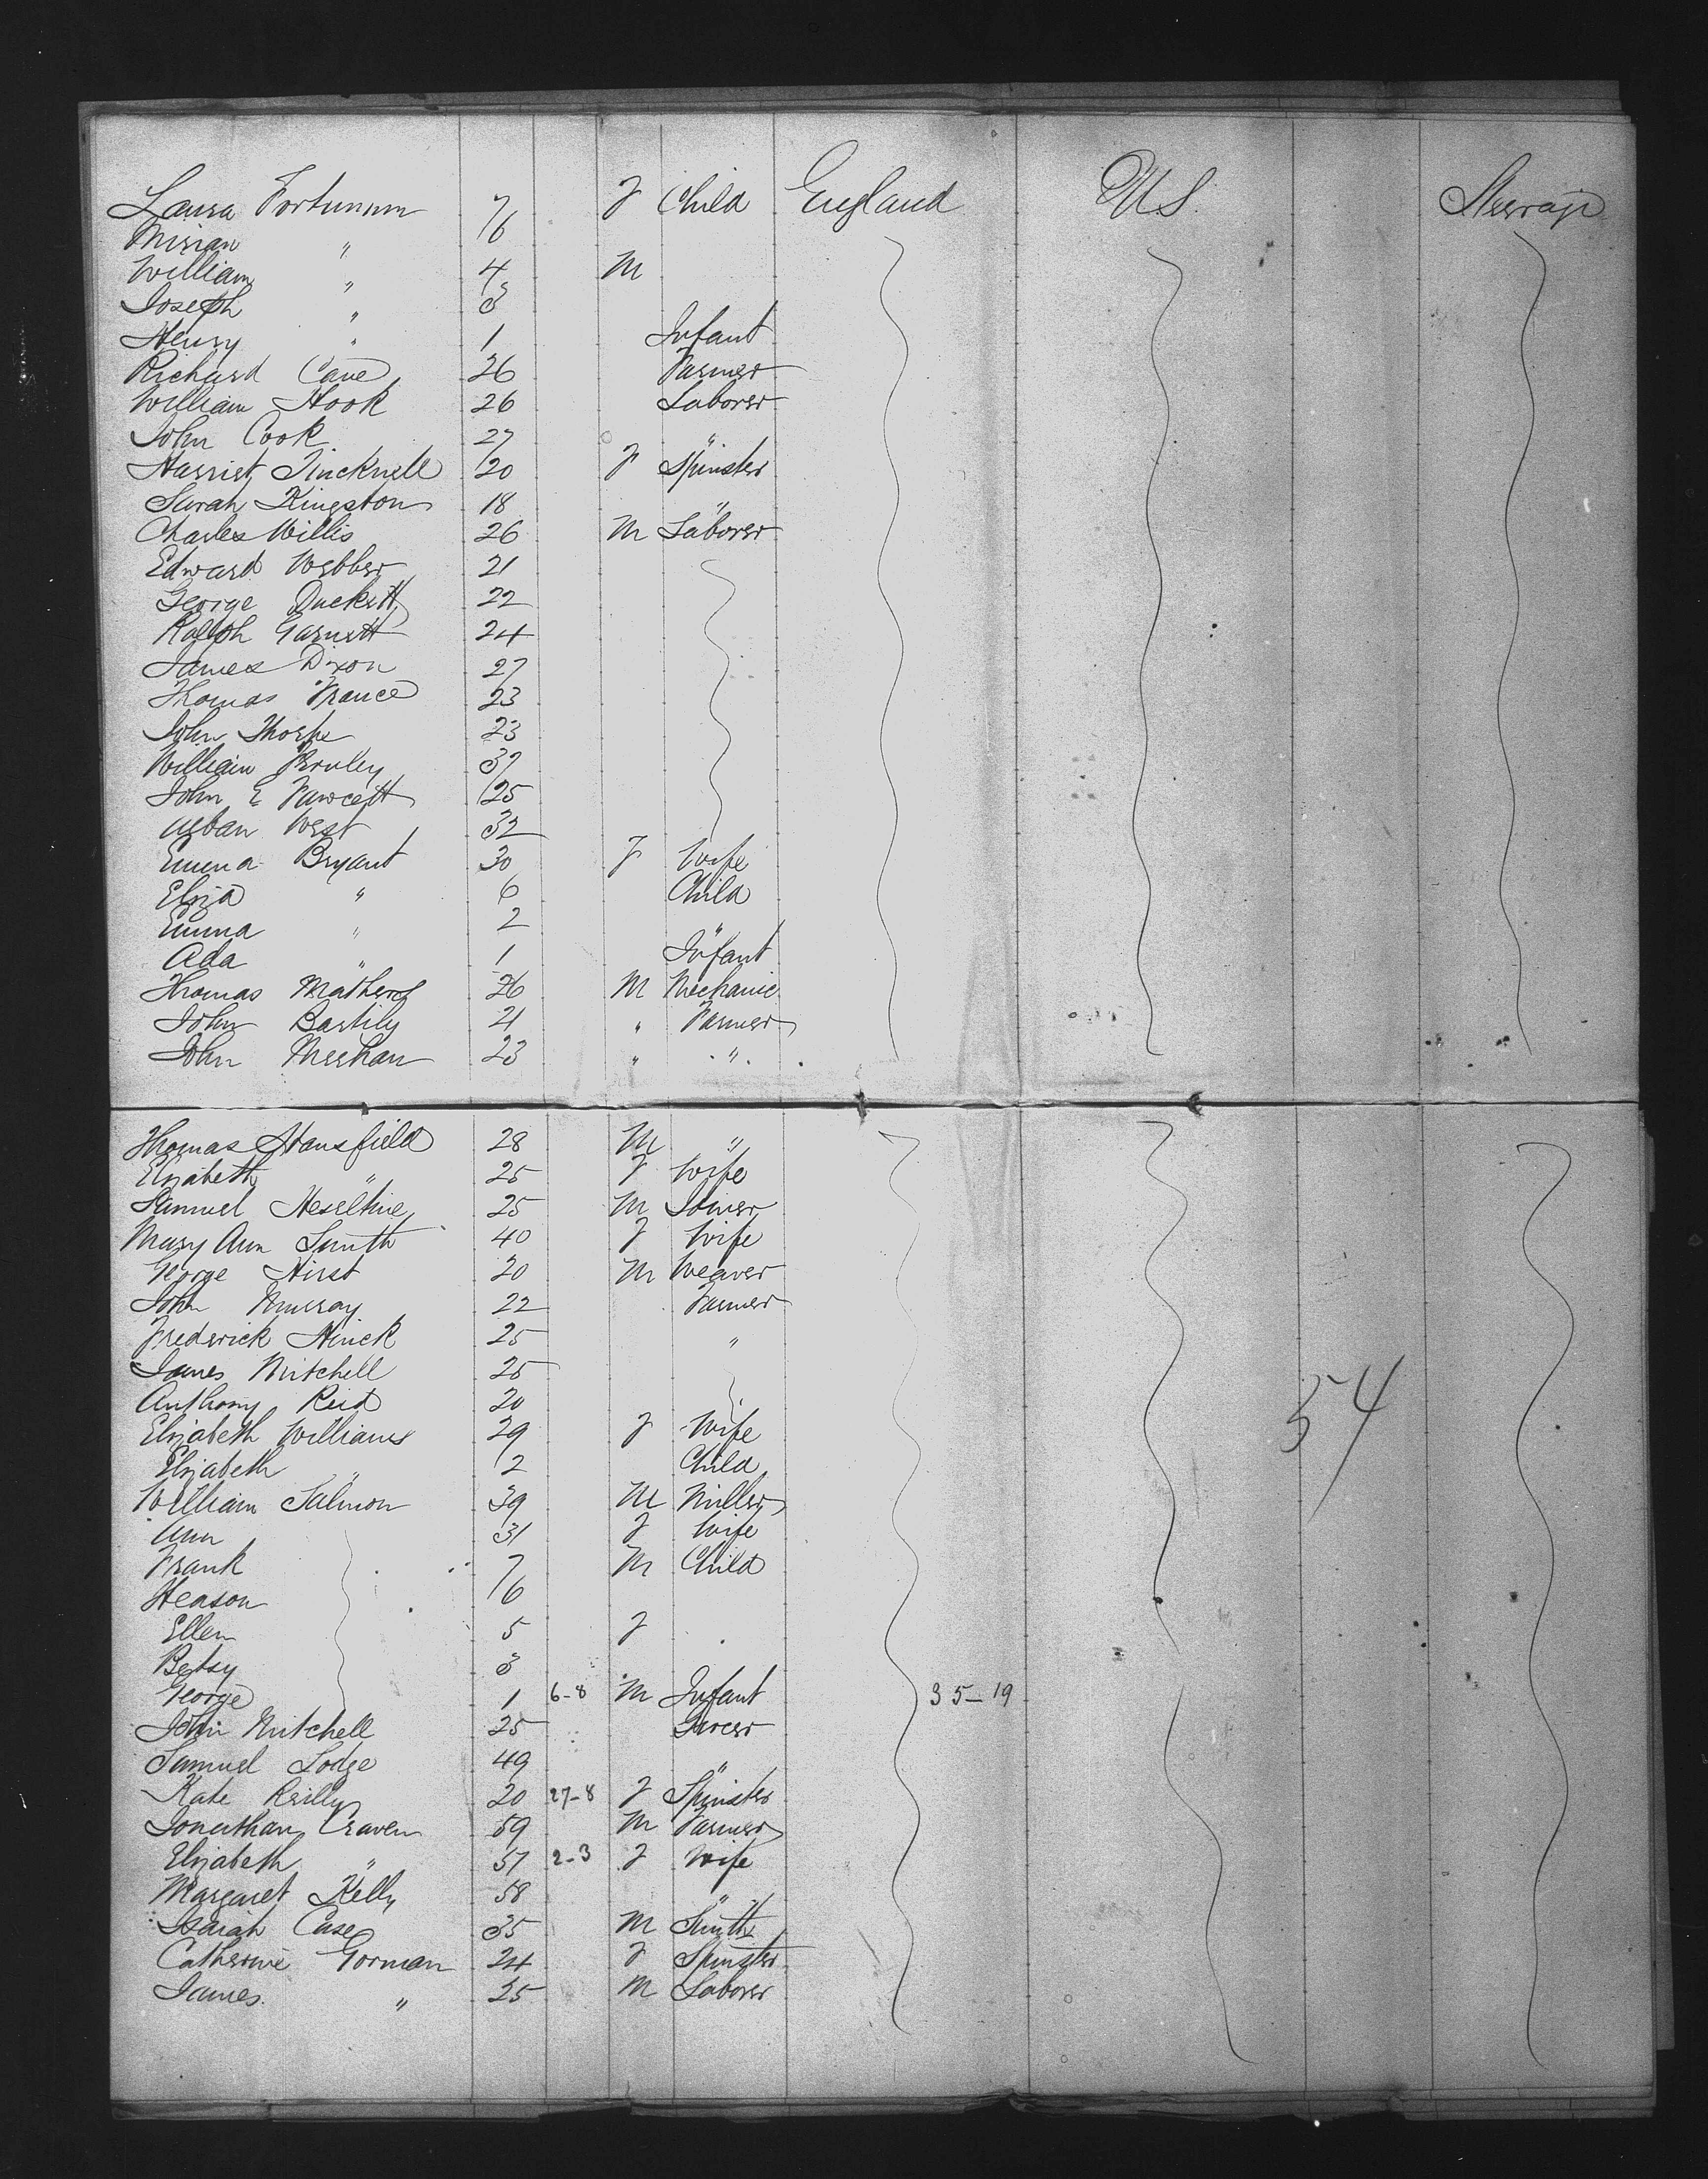 Laura Fortunum 7 F Child England U.S. Steerage
Mirian " 6
William " 4 M
Joseph " 3
Henry " 1 Infant
Richard Cave 26 Farmer
William Hook 26 Laborer
John Cook 27 "
Harriet Tincknell 20 F Spinster
Sarah Kingston 18 "
Charles Willis 26 M Laborer
Edward Webber 21
George Duckett 22
Ralph Garnett 24
James Dixon 27
Thomas France 23
John Thorpe 23
William 37
John E Fawcett 25
Urban West 32
Emma Bryant 30 F Wife
Eliza " 6 Child
Emma " 2 "
Ada " 1 Infant
Thomas Mathers 26 M Mechanic
John Bartily 21 " Farmer
John Meehan 23 " "
Thomas Stansfield 28 M "
Elizabeth " 25 F Wife
Samuel Heseltine 25 M Joiner
Mary Ann Smith 40 F Wife
George Hirst 20 M Weaver
John Murray 22 Farmer
Frederick Hinck 25 "
James Mitchell 25
Anthony Reid 20
Elizabeth Williams 29 F Wife 54
Elizabeth " 2 Child
William Salmon 39 M Miller
Ann 31 F Wife
Frank 7 M Child
Heason 6
Ellen 5 F
Betsy 3
George 1 6-8 M Infant 35-19
John Mitchell 25 Grocer
Samuel Lodge 49 "
Kate Reilly 20 27-8 F Spinster
Jonathan Craven 59 M Farmer
Elizabeth " 57 2-3 F Wife
Margaret Kelly 58 "
Isaiah Case 35 M Smith
Catherine Gorman 24 F Spinster
James " 25 M Laborer